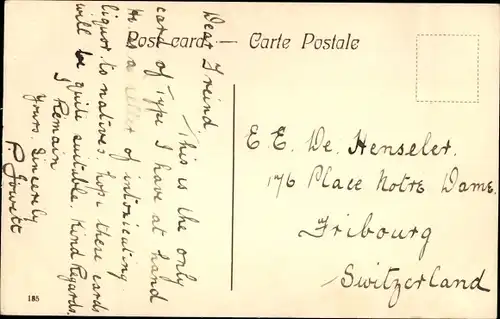 Post card — Carte Postale
Dear Freind
This is the only
card of Type I have at hand
He is a seller of intoxicating
liquor to natives, hope these cards
will be quite suitable. Kind Regards.
I Remain
Yours. Sincerely
P. Jowett
E. E. De. Henseler.
176 Place Notre Dame.
Fribourg
Switzerland
185